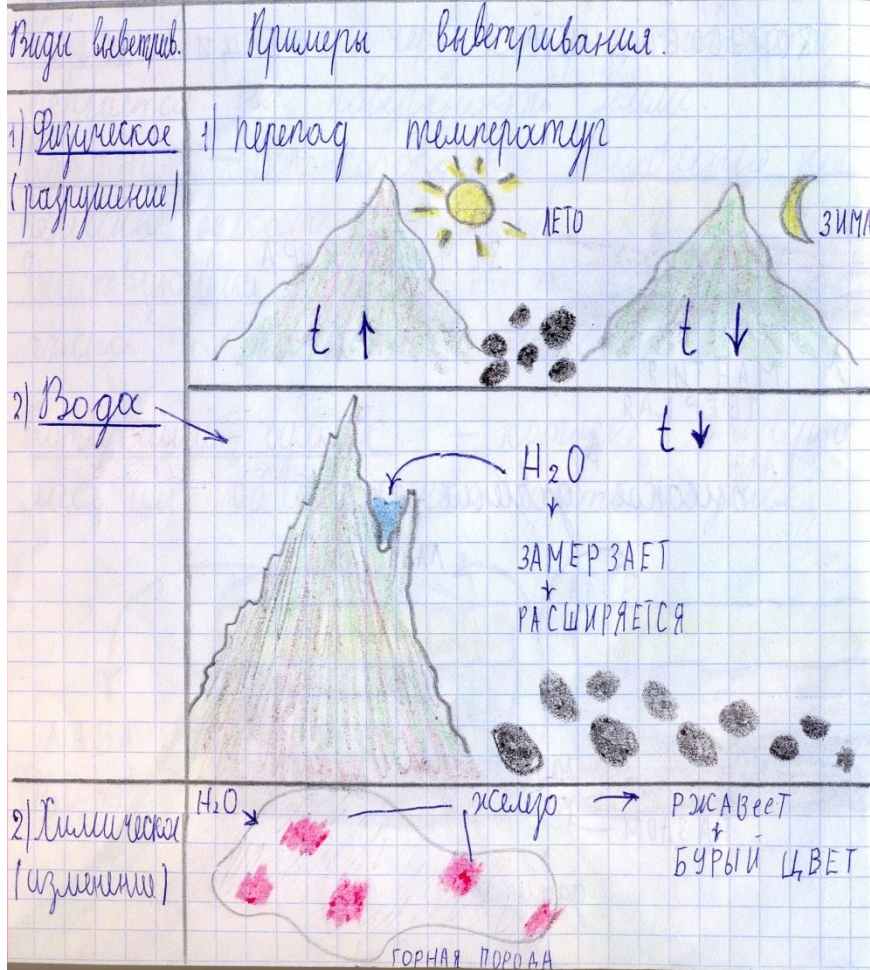 Виды выветрив.
Примеры выветривания.
1) Физическое
(разрушение)
1) перепад температур
ЛЕТО
ЗИМА
t ↑
t ↓
2) Вода
t ↓
H₂O
ЗАМЕРЗАЕТ
РАСШИРЯЕТСЯ
2) Химическое
(изменение)
H₂O
железо → РЖАВеет
БУРЫЙ ЦВЕТ
ГОРНАЯ ПОРОДА